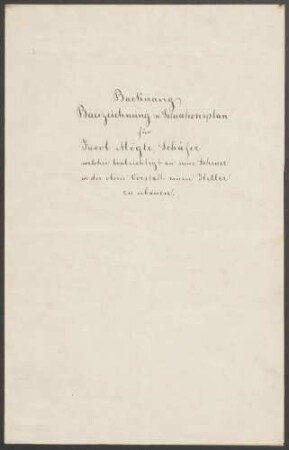 Backnang
Bauzeichnung u Situationsplan
für
Jacob Mögle, Schäfer
welcher beabsichtigt an seine Scheuer
in der obern Vorstadt einen Keller
zu erbauen.